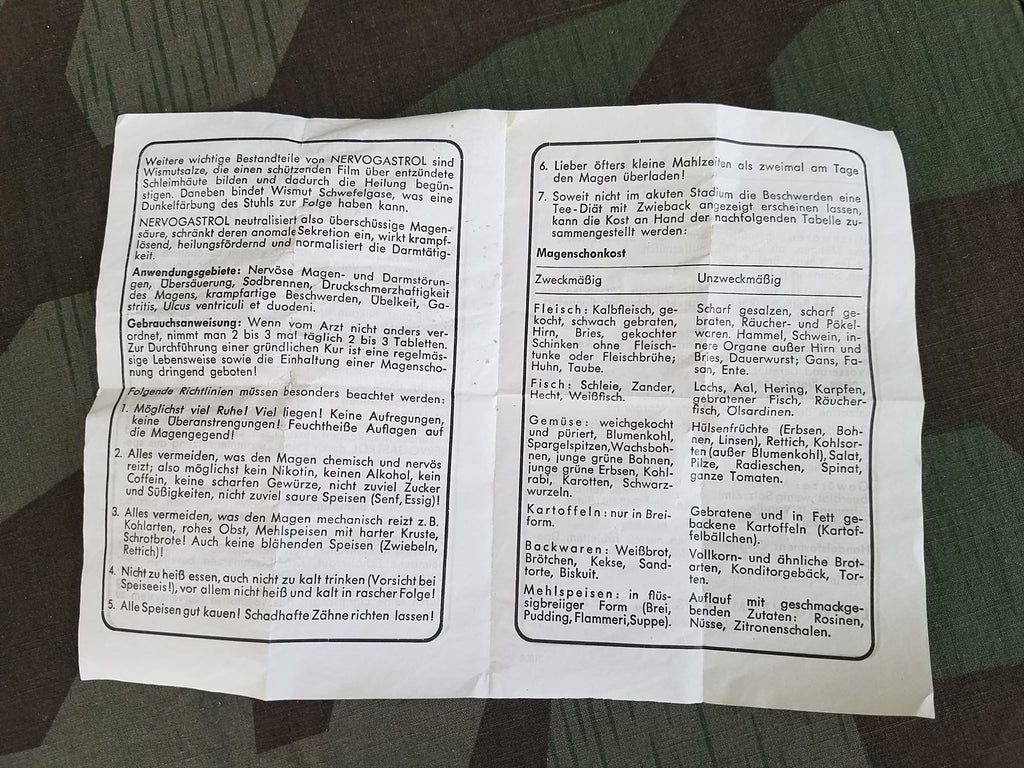 Weitere wichtige Bestandteile von NERVOGASTROL sind
Wismutsalze, die einen schützenden Film über entzündete
Schleimhäute bilden und dadurch die Heilung begün-
stigen. Daneben bindet Wismut Schwefelgase, was eine
Dunkelfärbung des Stuhls zur Folge haben kann.
NERVOGASTROL neutralisiert also überschüssige Magen-
säure, schränkt deren anomale Sekretion ein, wirkt krampf-
lösend, heilungsfördernd und normalisiert die Darmtätig-
keit.
Anwendungsgebiete: Nervöse Magen- und Darmstörun-
gen, Übersäuerung, Sodbrennen, Druckschmerzhaftigkeit
des Magens, krampfartige Beschwerden, Übelkeit, Ga-
stritis, Ulcus ventriculi et duodeni.
Gebrauchsanweisung: Wenn vom Arzt nicht anders ver-
ordnet, nimmt man 2 bis 3 mal täglich 2 bis 3 Tabletten.
Zur Durchführung einer gründlichen Kur ist eine regelmäs-
sige Lebensweise sowie die Einhaltung einer Magenscho-
nung dringend geboten!
Folgende Richtlinien müssen besonders beachtet werden:
1. Möglichst viel Ruhe! Viel liegen! Keine Aufregungen,
keine Überanstrengungen! Feuchtheiße Auflagen auf
die Magengegend!
2. Alles vermeiden, was den Magen chemisch und nervös
reizt; also möglichst kein Nikotin, keinen Alkohol, kein
Coffein, keine scharfen Gewürze, nicht zuviel Zucker
und Süßigkeiten, nicht zuviel saure Speisen (Senf, Essig)!
3. Alles vermeiden, was den Magen mechanisch reizt z. B.
Kohlarten, rohes Obst, Mehlspeisen mit harter Kruste,
Schrotbrote! Auch keine blähenden Speisen (Zwiebeln,
Rettich)!
4. Nicht zu heiß essen, auch nicht zu kalt trinken (Vorsicht bei
Speiseeis!), vor allem nicht heiß und kalt in rascher Folge!
5. Alle Speisen gut kauen! Schadhafte Zähne richten lassen!
6. Lieber öfters kleine Mahlzeiten als zweimal am Tage
den Magen überladen!
7. Soweit nicht im akuten Stadium die Beschwerden eine
Tee-Diät mit Zwieback angezeigt erscheinen lassen,
kann die Kost an Hand der nachfolgenden Tabelle zu-
sammengestellt werden:
Magenschonkost
Zweckmäßig
Unzweckmäßig
Fleisch: Kalbfleisch, ge-
kocht, schwach gebraten,
Hirn, Bries, gekochter
Schinken ohne Fleisch-
tunke oder Fleischbrühe;
Huhn, Taube.
Scharf gesalzen, scharf ge-
braten, Räucher- und Pökel-
waren. Hammel, Schwein, in-
nere Organe außer Hirn und
Bries, Dauerwurst; Gans, Fa-
san, Ente.
Fisch: Schleie, Zander,
Hecht, Weißfisch.
Lachs, Aal, Hering, Karpfen,
gebratener Fisch, Räucher-
fisch, Ölsardinen.
Gemüse: weichgekocht
und püriert, Blumenkohl,
Spargelspitzen, Wachsboh-
nen, junge grüne Bohnen,
junge grüne Erbsen, Kohl-
rabi, Karotten, Schwarz-
wurzeln.
Hülsenfrüchte (Erbsen, Boh-
nen, Linsen), Rettich, Kohlsor-
ten (außer Blumenkohl), Salat,
Pilze, Radieschen, Spinat,
ganze Tomaten.
Kartoffeln: nur in Brei-
form.
Gebratene und in Fett ge-
backene Kartoffeln (Kartof-
felbällchen).
Backwaren: Weißbrot,
Brötchen, Kekse, Sand-
torte, Biskuit.
Vollkorn- und ähnliche Brot-
arten, Konditorgebäck, Tor-
ten.
Mehlspeisen: in flüs-
sigbreiiger Form (Brei,
Pudding, Flammeri, Suppe).
Auflauf mit geschmackge-
benden Zutaten: Rosinen,
Nüsse, Zitronenschalen.